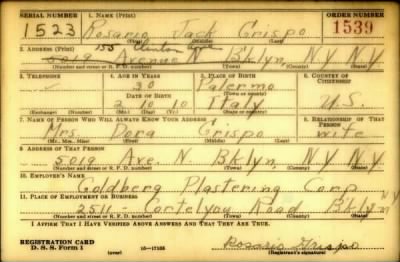 SERIAL NUMBER 1. NAME (Print) ORDER NUMBER
1523 Rosario Jack Crispo 1539
(First) (Middle) (Last)
2. ADDRESS (Print) 155 Clinton Ave
5019 Avenue N Bklyn N.Y. N.Y.
(Number and street or R. F. D. number) (Town) (County) (State)
3. TELEPHONE 4. AGE IN YEARS 5. PLACE OF BIRTH 6. COUNTRY OF CITIZENSHIP
30 Palermo
DATE OF BIRTH (Town or county)
2 10 10 Italy U.S.
(Exchange) (Number) (Mo.) (Day) (Yr.) (State or country)
7. NAME OF PERSON WHO WILL ALWAYS KNOW YOUR ADDRESS 8. RELATIONSHIP OF THAT PERSON
Mrs. Dora Crispo wife
(Mr., Mrs., Miss) (First) (Middle) (Last)
9. ADDRESS OF THAT PERSON
5019 Ave. N. Bklyn, N.Y. N.Y.
(Number and street or R. F. D. number) (Town) (County) (State)
10. EMPLOYER'S NAME
Goldberg Plastering Corp
11. PLACE OF EMPLOYMENT OR BUSINESS
2511 - Cortelyou Road Bklyn NY
(Number and street or R. F. D. number) (Town) (County) (State)
I AFFIRM THAT I HAVE VERIFIED ABOVE ANSWERS AND THAT THEY ARE TRUE.
REGISTRATION CARD
D. S. S. Form 1 (over) 16—17105 Rosario Crispo
(Registrant's signature)